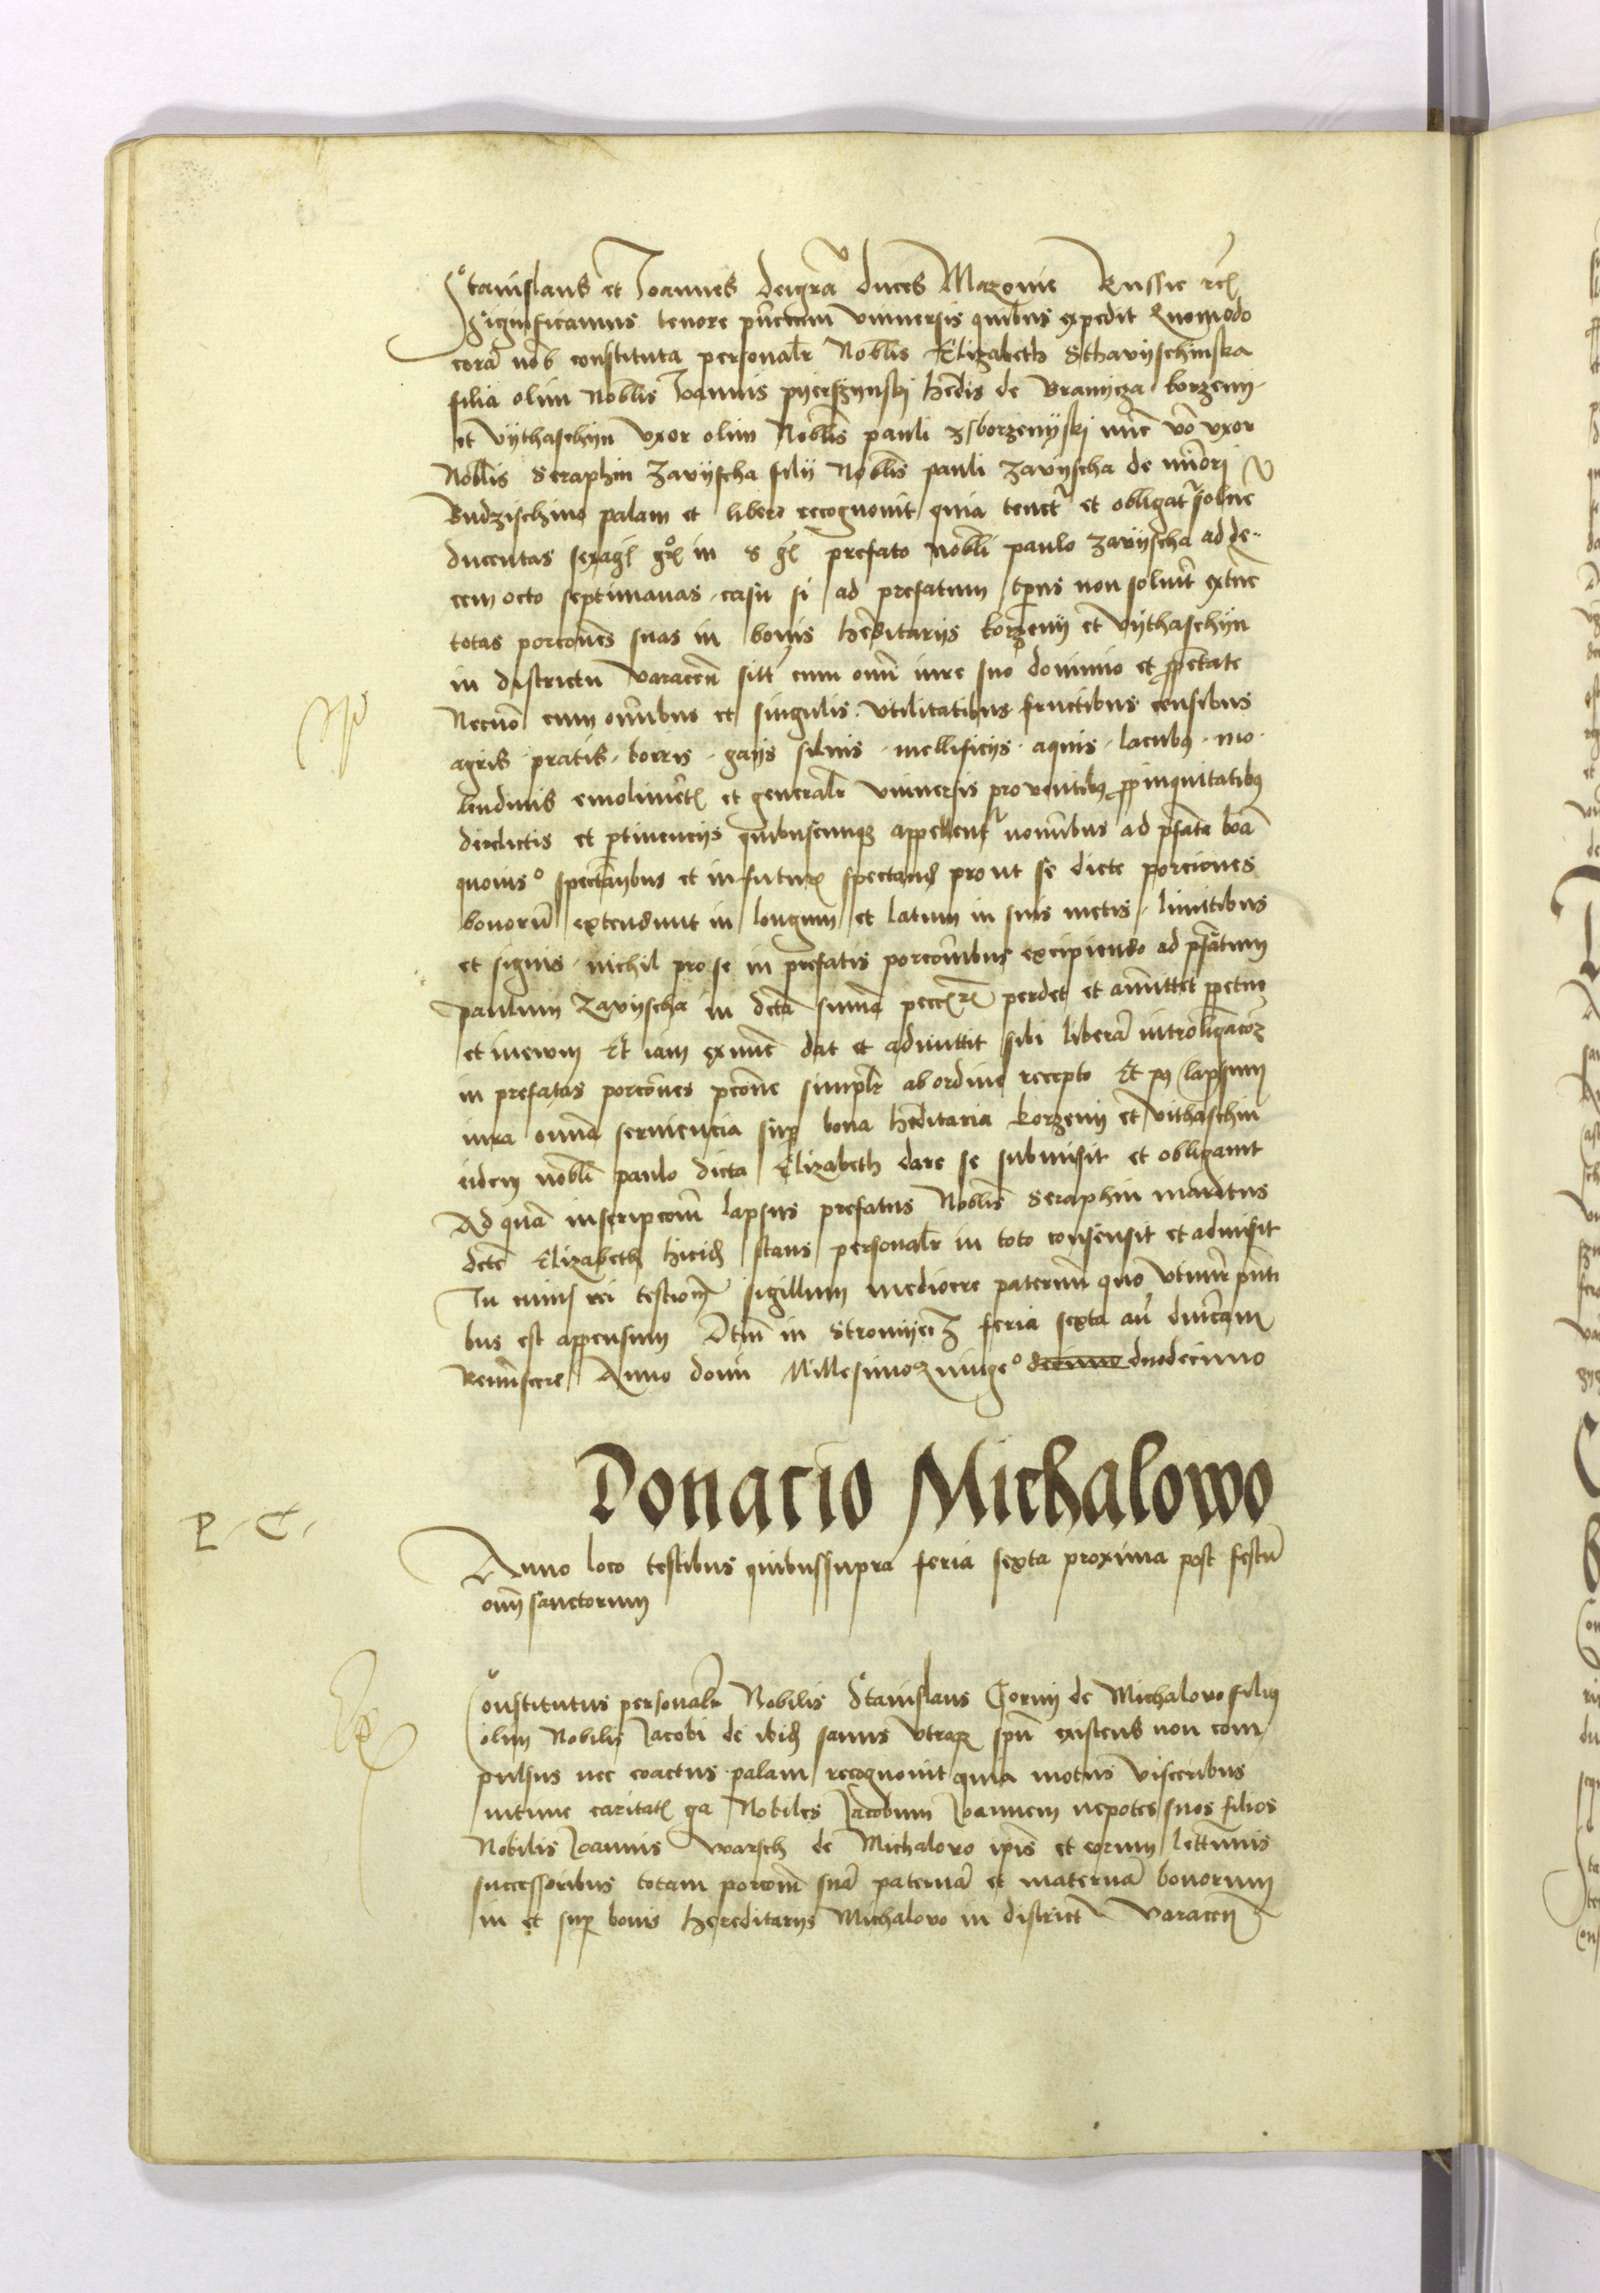 Stanislaus et Joannes deigrã duces Mazouie Russie etc̃
Significamus tenore pñcium vniuersis quibus expedit Quomodo
corã nob̃ constituta personalr̃ Nobl̃is Elizabeth Sthavyschinska
filia olim Nobl̃is Joannis pyerszynskj hẽdis de Branycza korzenij
et vythaschyn vxor olim Nobl̃is pauli zborzenyskj nũc võ vxor
Nobl̃is Seraphin Zavyscha filij Nobl̃is pauli Zavyscha de mĩori
Budzischino palam et libere recognouit quia tenet̃ et obligat̃ soluẽ
ducentas sexag̃ gr̃ in g̃ prefato nobl̃i paulo Zavyscha ad de-
cem octo septimanas casu si ad prefatum tp̃us non soluit̃ extũc
totas porcões suas in bonis hẽditarijs korzenij et vythaschyn
in districtu varaceñ sitt̃ cum oñi iure suo dominio et ꝓprietate
Necnõ cum oñibus et singulis vtilitatibus fructibus censibus
agris pratis borris gayis siluis mellificijs aquis lacubꝯ mo
lendinis emolimẽt̃ et generalr̃ vniuersis prouentibꝯ ꝓpinquitatibꝯ
derelictis et ptinencijs quibuscunqꝫ appellent̃ noĩibus ad p̃fata boã
quouisº spectãtibus et infutuꝝ spectand̃ prout se dicte porciones
bonorũ extendunt in longum et latum in suis metis limitibus
et signis nichil pro se in prefatis porcoĩbus excipiendo ad p̃fatum
paulum Zavyscha in dcã sum̃a perdet et amittet ꝓpetuo
et ineuum Et iam exnũc dat et admittit sibi liberã introligacoẽ
in prefatas porcões simplr̃ ab ordine recepto Et lapsum
iura om̃ia seruiencia suꝑ bona hẽditaria korzenij et vithaschin
eidem nobl̃i paulo dicta Elizabeth dare se submisit et obligauit
Ad quã inscripcoẽm lapsus prefatus Nobl̃is Seraphin maritus
dcẽ Elizabeth hicid̃ stans personalr̃ in toto consensit et admisit
In cuius rei testioĩm sigillum mediocre paternũ quo vtimur p̃nti
bus est appensum Dtm̃ in Stromyecz feria sexta añ duĩcam
Remĩscere Anno domi Millesimoquingẽº decimo duodecimo
Donacio Michalowo
P. C.
Anno loco testibus quibussupra feria sexta proxima post festũ
om̃ sanctorum
Constitutus personalr̃ Nobilis Stanislaus Gorny de Michalowo filiꝯ
olim Nobilis Jacobi de ibid̃ sanus vtroqꝫ existens non com
pulsus nec coactus palam recognouit quia motus visceribus
intime caritat̃ ga Nobiles Jacobum Joannem nepotes suos filios
Nobilis Joannis warsch de Michalowo ip̃is et eorum lettimis
successoribus totam porcoẽm suã paternã et maternã bonorum
in et suꝑ bonis hereditarijs Michalowo in district varaceñ